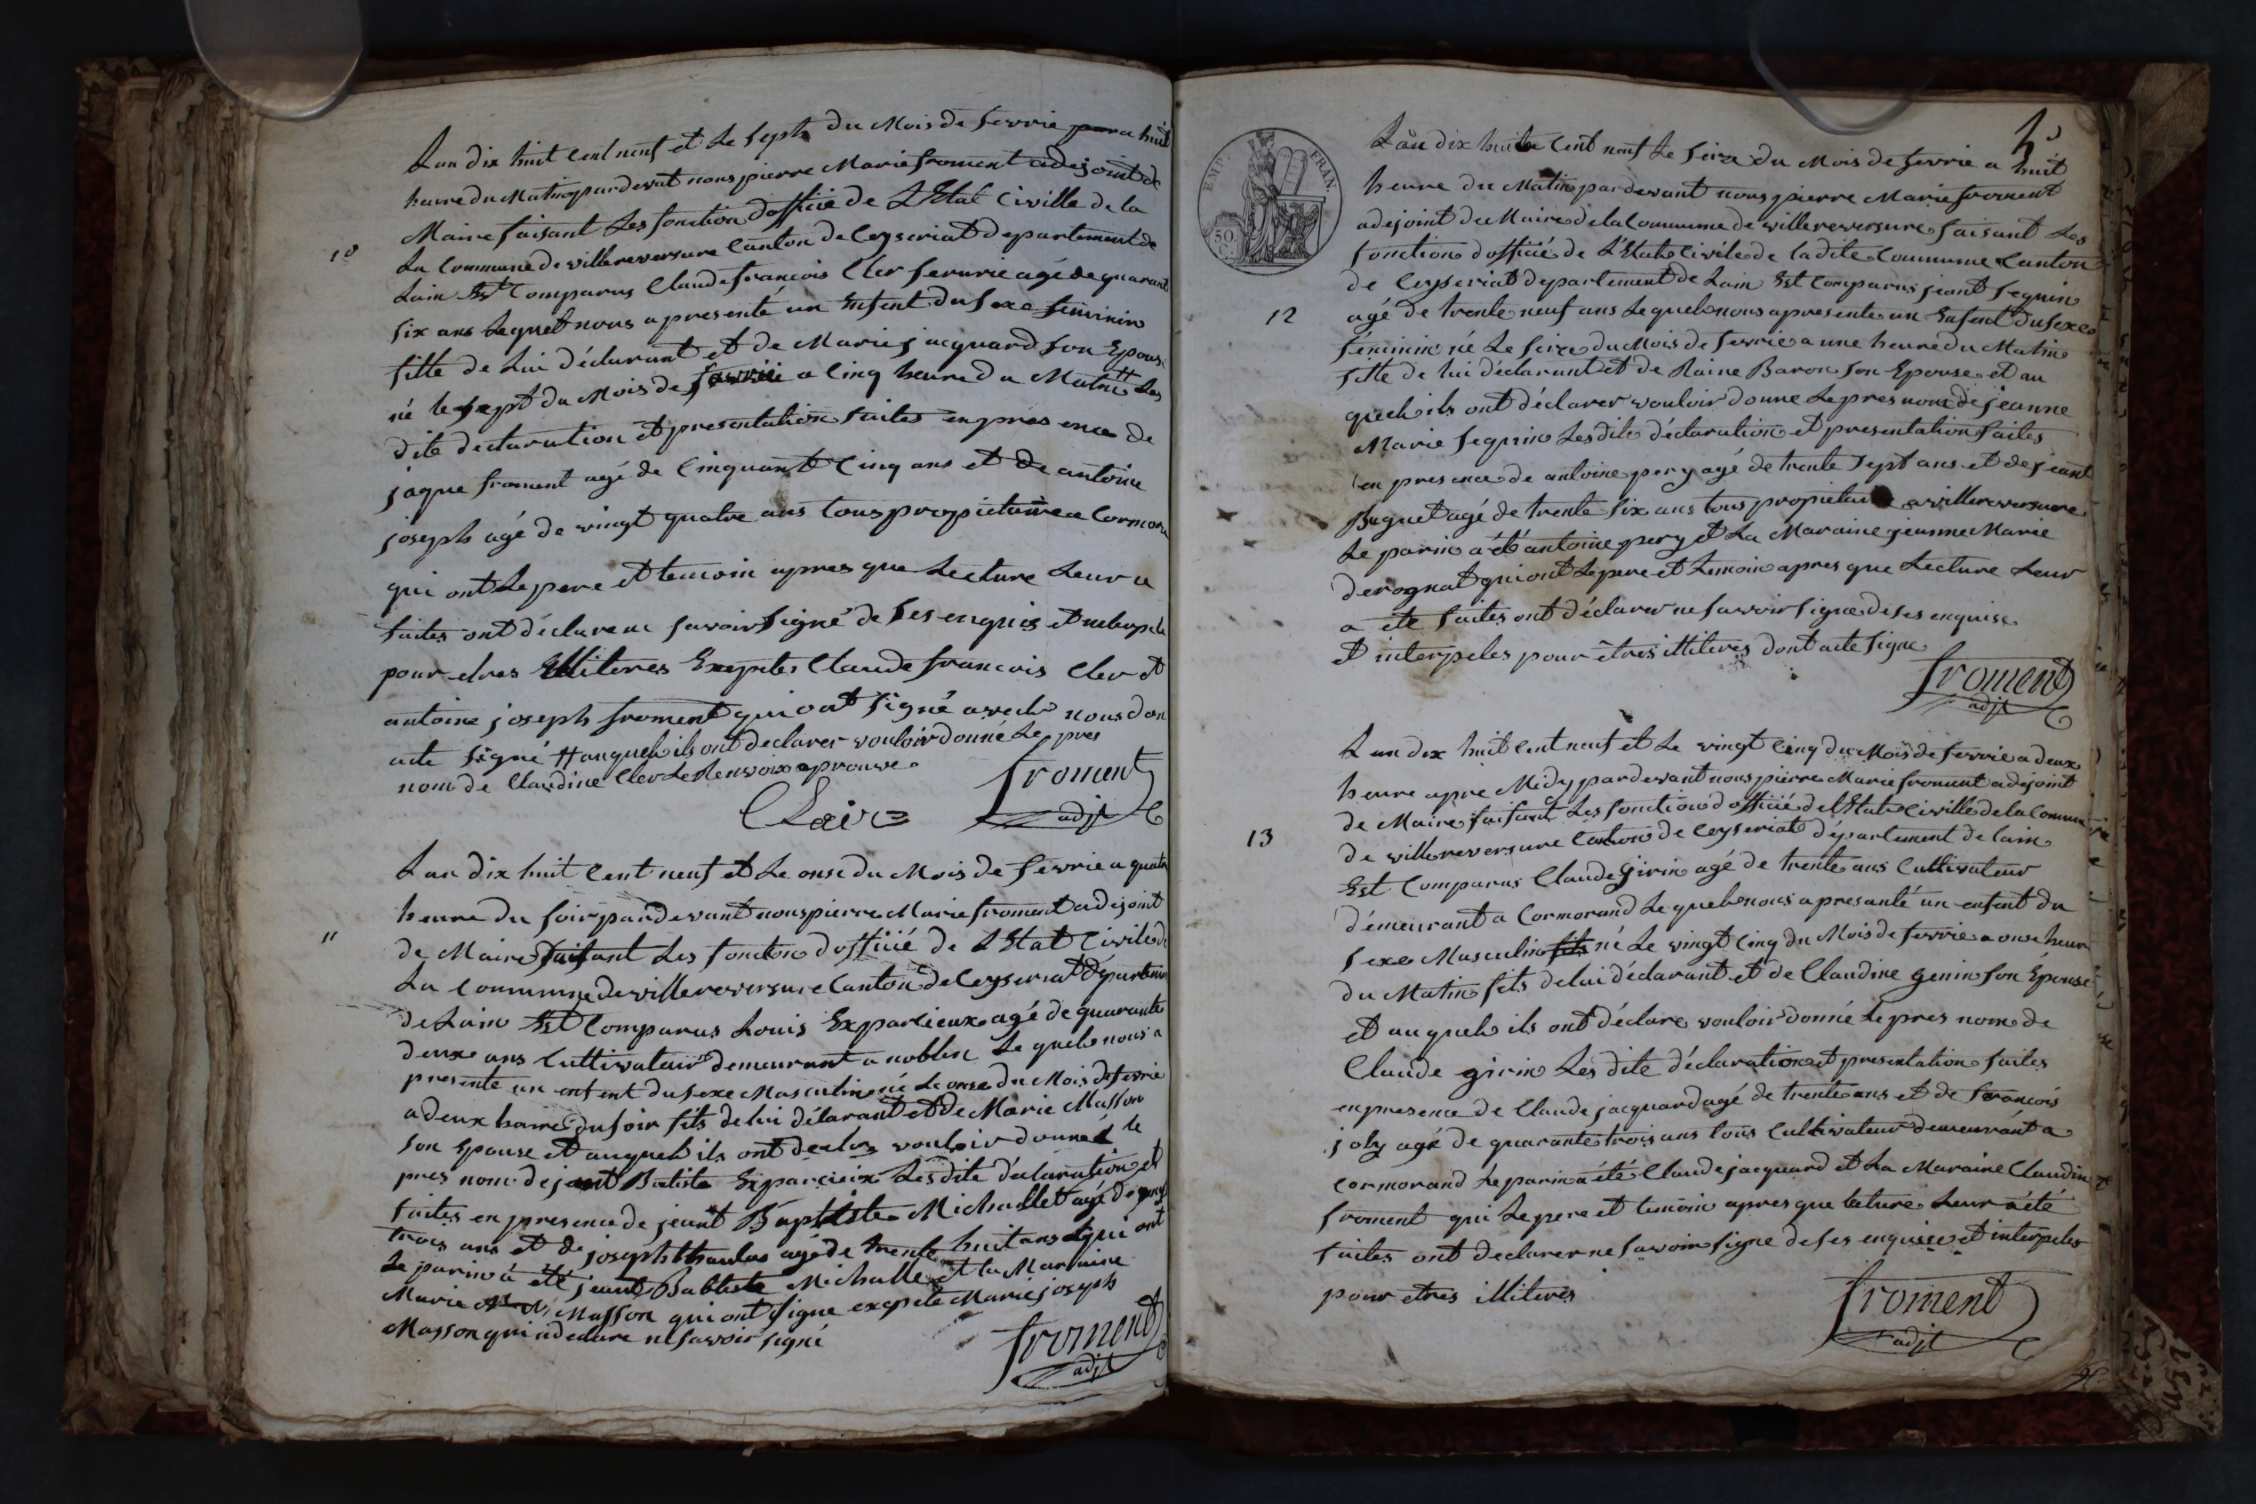 10
Lan dix huit Cent neuf et Le Sept du Mois de fevrie a huit
heure du Matin pardevat nous pierre Marie froment adejoint de
Maire faisant Les fonction d'officie de L'Etat Civille de la
La Commune de villereversure Canton de Ceyseriat departement de
Lain Est Comparus Claude francois Cler serurie agé de quarant
six ans Lequel nous a presenté un Enfent du sexe feminin
fille de Lui déclarant et de Marie jacquard son Epouse
né le sept du Mois de fevrie a Cinq heure du Matin # Les
dite declaration et presentation faites en pres ence de
jaque froment agé de Cinquant Cinq ans et de antoine
joseph agé de vingt quatre ans tous propietaire a Cormoran
qui ont Le pere et temoin apres que Lecture Leur a
faites ont déclare ne savoir signé de Ses enquis et
pour etres Illiteres Exeptes Claude francois Cler et
antoine joseph froment qui ont signé aveck nous don
acte signé # auquel ils ont declarer vouloir donné Le pres
nom de Claudine Cler Le Renvoix aprouve
Clair froment
adjt
11
Lan dix huit Cent neuf et Le onse du Mois de fevrie a quatre
heure du soir pardevant nous pierre Marie froment adejoint
de Maire faisant Les fonction d'officié de L'Etat Civile de
La Commune de villereversure Canton de Ceyseriat départemen
de Lain Est Comparus Louis Exparcieux agé de quarante
deux ans Cultivateur demeurant a noblin Le quel nous a
presente un enfent du sexe Masculin né Le onse du Mois de fevrie
a deux heure du soir fils de lui délarant et de Marie Masson
son Epouse et auquel ils ont declare vouloir donner le
pres nom de jeant Batiste Exparcieix Les dite déclaration et
faites en presence de jeant Baptiste Michallet agé de
trois ans et de joseph agé de trente huit ans et qui ont
Le parin a été jeant Babtiste Michalle et la Maraine
Marie Masson qui ont signe exepté Marie joseph
Masson qui a declare ne savoir signé
froment
adjt
5
EMP. FRAN.
50
Lan dix huit Cent neuf Le seize du Mois de fevrie a huit
heure du Matin pardevant nous pierre Marie froment
adejoint du Maire de la Commune de villereversure faisant Les
fonction d'officié de L'Etat Civile de la dite Commune Canton
de Ceyseriat departement de Lain Est Comparus jeant Seguin
12
agé de trente neuf ans Lequel nous apresente un Enfent du sexe
féminin né Le seize du Mois de fevrie a une heure du Matin
fille de lui déclarant et de Raine Baron son Epouse et au
quel ils ont déclarer vouloir donne Le pres nom de jeanne
Marie Seguin Les dite déclaration et presentation faites
en presence de antoine pery agé de trente sept ans et de jeant
Buguet agé de trente six ans tous propietaire a villereversure
Le parin a été antoine pery et La Maraine jeanne Marie
derognat qui ont Le pere et temoin apres que Lecture Leur
a été faites ont déclarer ne savoir signe de ses enquise
et interpeles pour êtres illiteres dont acte signe
froment
adjt
Lan dix huit Cent neuf et Le vingt Cinq du Mois de fevrie a deux
heure apre Midy pardevant nous pierre Marie froment adejoint
de Maire faisant Les fonction d'officié de L'Etat Civille de la Commune
13
de villereversure Canton de Ceyseriat département de lain
Est Comparus Claude Girin agé de trente ans Cultivateur
démeurant a Cormorand Le quel nous a presanté un enfent du
sexe Masculin né Le vingt Cinq du Mois de fevrie a onse heure
du Matin fils de lui déclarant et de Claudine genin son Épouse
et auquel ils ont déclare vouloir donné Le pres nom de
Claude girin Les dite déclaration et presentation faites
en presence de Claude jacquard agé de trente ans et de francois
joly agé de quarante trois ans tous Cultivateur demeurant a
Cormorand Le parin a été Claude jacquard et La Maraine Claudine
froment qui Le pere et temoin apres que lecture Leur a été
faites ont declarer ne savoir signe de ses enquise et interpeles
pour etres illiteres
froment
adjt